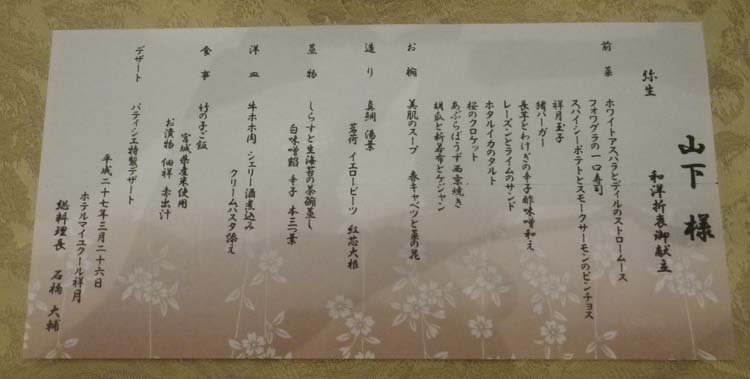 山下 様
和洋折衷御献立
弥生
前菜
ホワイトアスパラとディルのストロームース
フォワグラの一口寿司
スパイシーポテトとスモークサーモンのピンチョス
祥月玉子
猪バーガー
長芋とわけぎの辛子酢味噌和え
レーズンとライムのサンド
ホタルイカのタルト
桜のクロケット
あぶらぼうず西京焼き
胡瓜と新若布とケジャン
お椀
美肌のスープ 春キャベツと菜の花
造り
真鯛 湯葉
茗荷 イエロービーツ 紅芯大根
蒸物
しらすと生海苔の茶碗蒸し
白味噌餡 辛子 本三つ葉
洋皿
牛ホホ肉 シェリー酒煮込み
クリームパスタ添え
食事
竹の子ご飯
宮城県産米使用
お漬物 佃祥 赤出汁
デザート
パティシエ特製デザート
平成二十七年三月二十六日
ホテルマイユクール祥月
総料理長 石橋 大輔